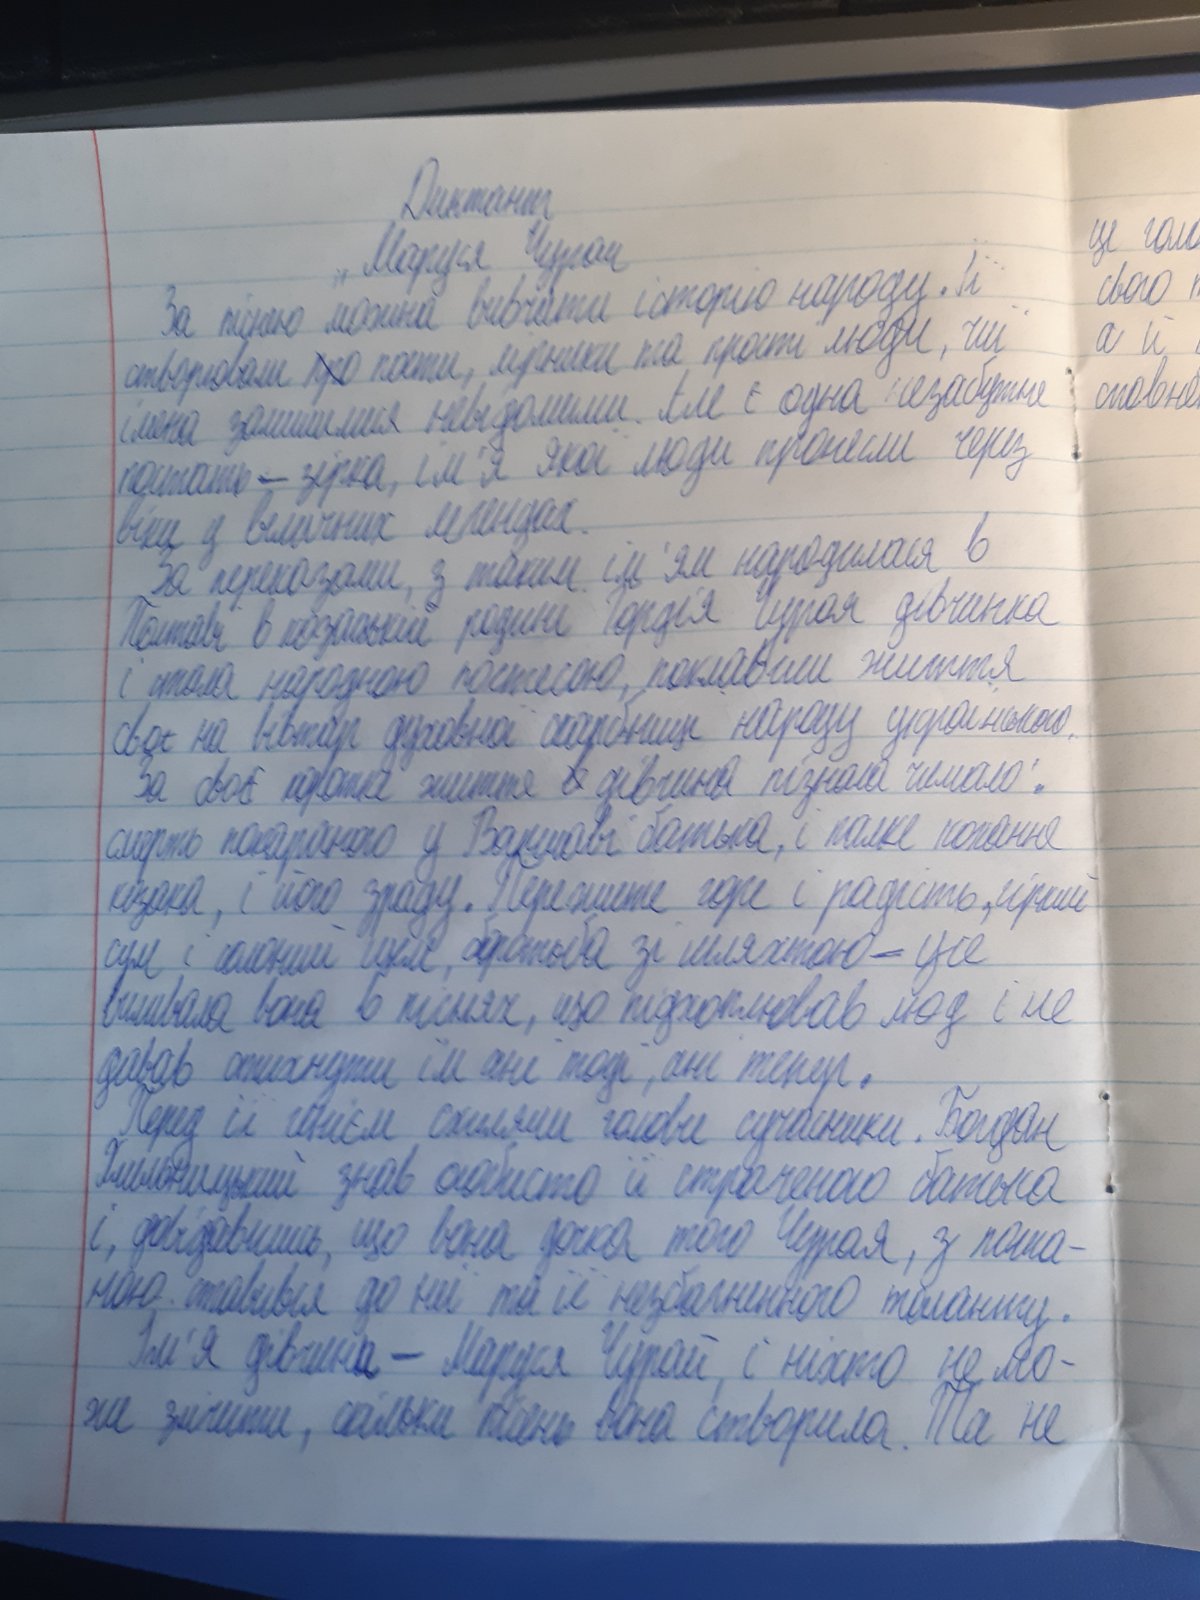 Диктант
„Маруся Чурай
За піснею можна вивчати історію народу. Її
створювали поети, лірники та прості люди, чиї
імена залишилися невідомими. Але є одна незабутня
постать – зірка, ім'я якої люди пронесли через
віки у величних легендах.
За переказами, з таким ім'ям народилася в
Полтаві в козацькій родині Гордія Чурая дівчинка
і стала народною поетесою, поклавши життя
своє на вівтар духовної скарбниці народу українського.
За своє коротке життя дівчина пізнала чимало:
смерть покараного у Варшаві батька, і палке кохання
козака, і його зраду. Пережите горе і радість, гіркий
сум і солоний, боротьба зі шляхтою – усе
виливала вона в піснях, що підхоплював люд і не
давав стихнути їм ані тоді, ані тепер.
Перед її генієм схиляли голови сучасники. Богдан
Хмельницький знав особисто її страченого батька
і, довідавшись, що вона дочка того Чурая, з поша-
ною ставився до неї та її незбагненного таланту.
Ім'я дівчина – Маруся Чурай, і ніхто не мо-
же злічити, скільки пісень вона створила. Та не
це голо
свого
а й
сповнен